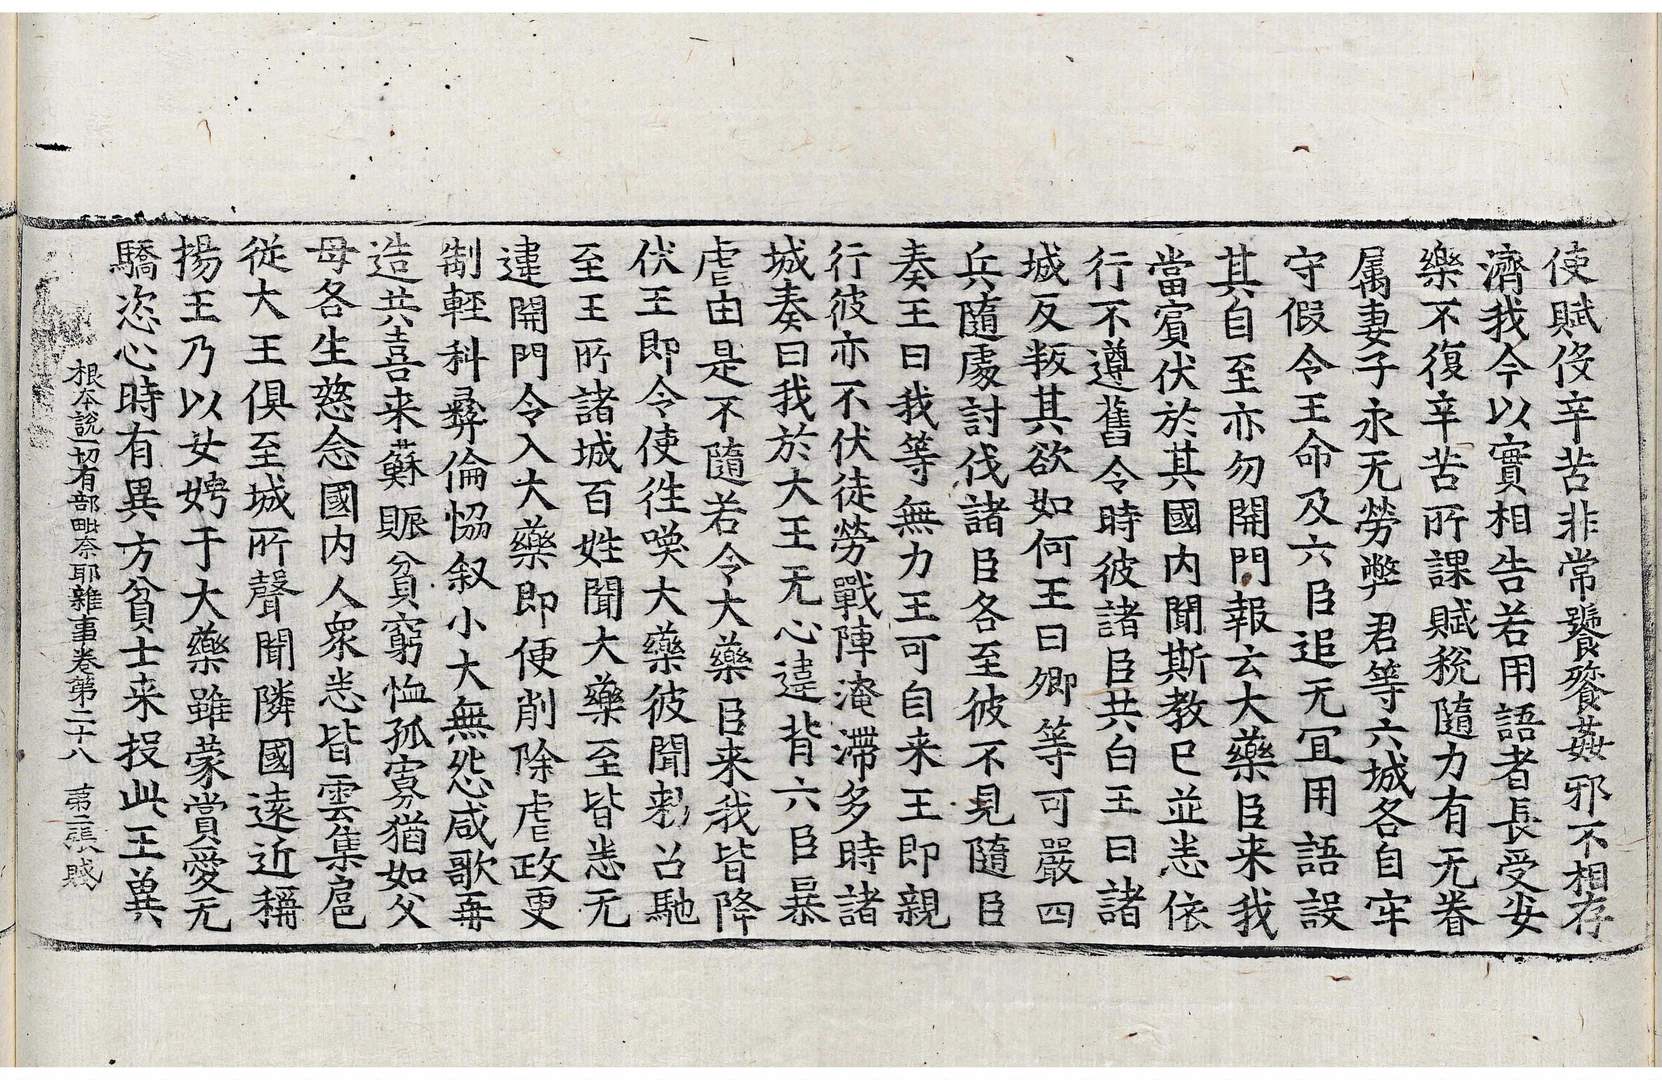 使賦役辛苦非常饕餮姦邪不相存
濟我今以實相告若用語者長受安
樂不復辛苦所課賦稅隨力有无眷
属妻子永无勞弊君等六城各自牢
守假令王命及六臣追无冝用語設
其自至亦勿開門報云大藥臣来我
當賓伏於其國内聞斯教已並悉依
行不遵舊令時彼諸臣共白王曰諸
城反叛其欲如何王曰卿等可嚴四
兵隨處討伐諸臣各至彼不見隨臣
奏王曰我等無力王可自来王即親
行彼亦不伏徒勞戰陣淹滯多時諸
城奏曰我於大王无心違背六臣暴
虐由是不隨若令大藥臣来我皆降
伏王即令使往喚大藥彼聞勑召馳
至王所諸城百姓聞大藥至皆悉无
違開門令入大藥即便削除虐政更
制輕科彛倫惱叙小大無怨咸歌再
造共喜来蘇賑貧窮恤孤寡猶如父
母各生慈念國内人衆悉皆雲集扈
從大王俱至城所聲聞隣國遠近稱
揚王乃以女娉于大藥雖蒙賞愛无
驕恣心時有異方貧士来投此王兾
根本說一切有部毗奈耶雜事卷第二十八　第二張　賤